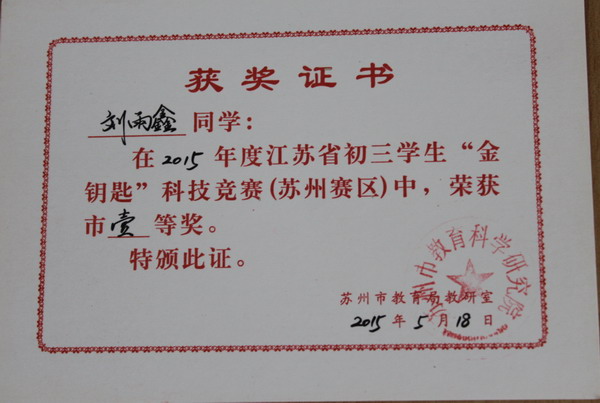 获奖证书
刘雨鑫 同学：
在2015年度江苏省初三学生“金
钥匙”科技竞赛(苏州赛区)中，荣获
市壹等奖。
特颁此证。
苏州市教育科学研究院
苏州市教育局教研室
2015年5月18日